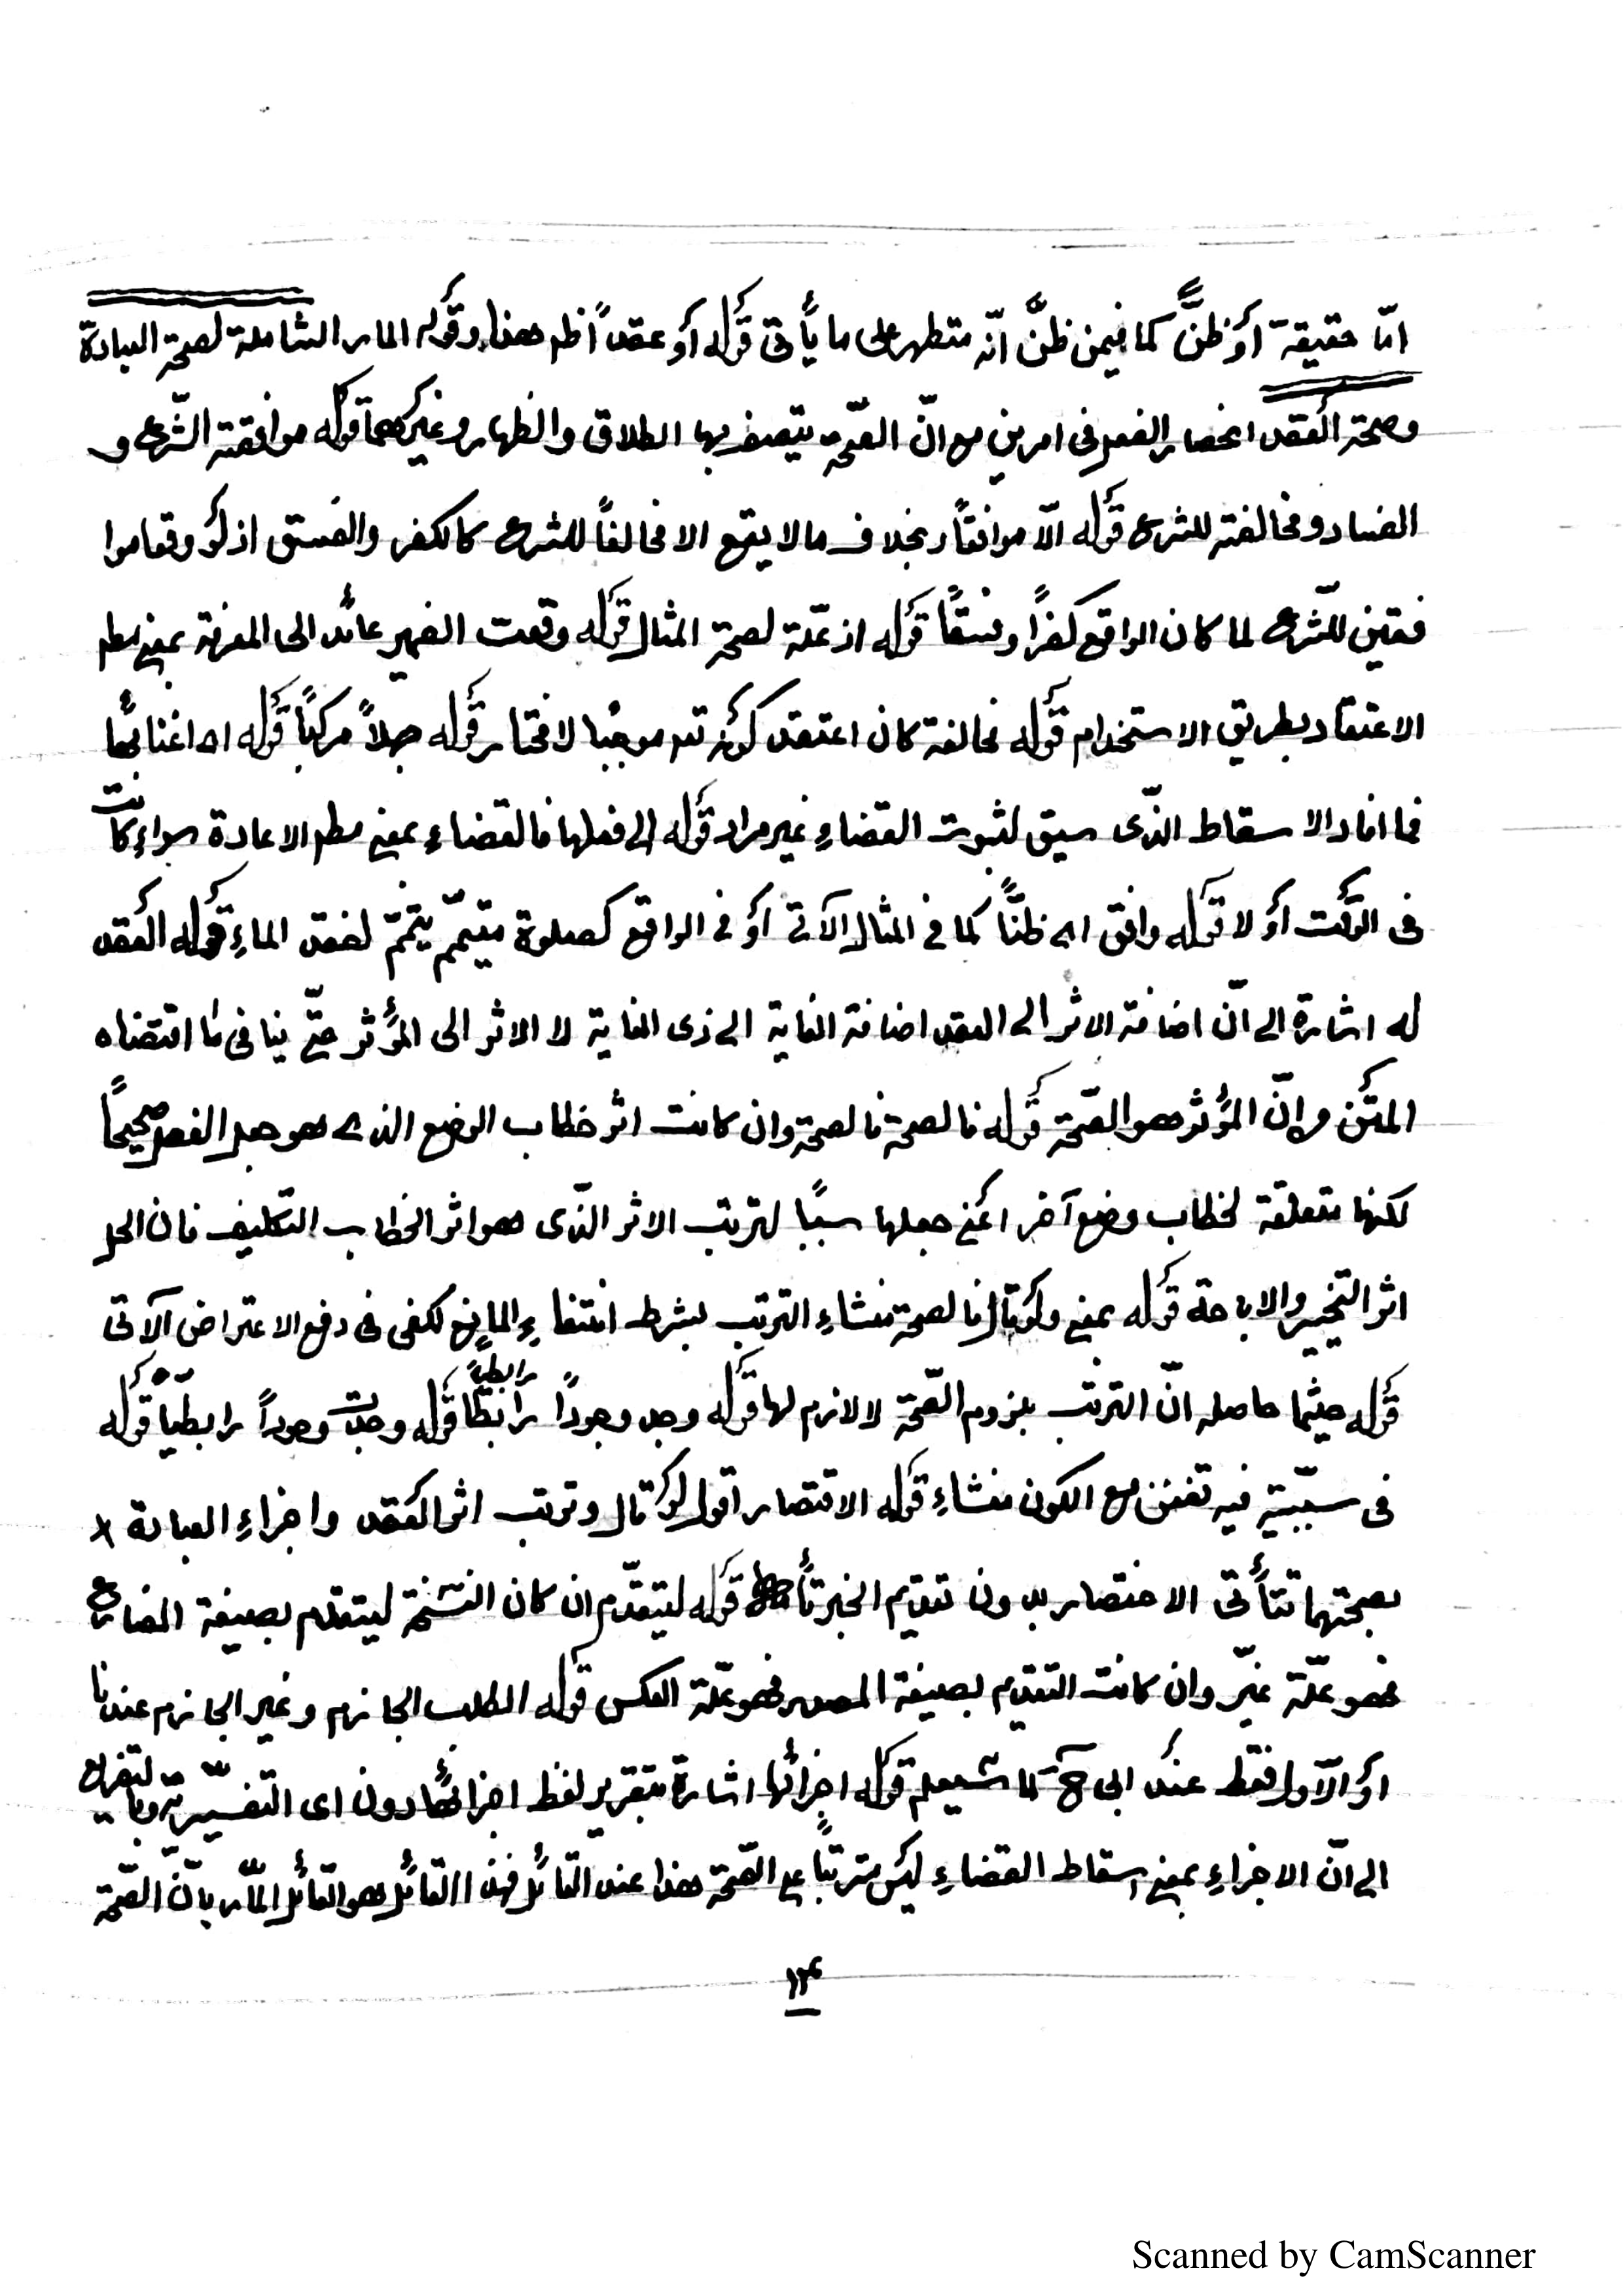 امّا حقيقة أوْ ظنًّا كما فيمن ظنَّ انّه متطهر على ما يأتى قوْله أوْ عقداً اظهر هذا وقوْله المار الشاملة لصحة العبادة
وصحة العقْد انحصار الفعل فى امرين مع انّ الصّحة يتصف بها الطلاق والظهار وغيْرهما قوْله موافقته الشّرع و
الفساد ومخالفته للشرع قوْله الّا موافقاً بخلاف ما لا يقع الا مخالفاً للشرع كالكفر والفسق اذ لوْ وقعا موا
فقين للشّرع لما كان الواقع كفراً وفسقاً قوْله اذ علّة لصحة المثال قوْله وقعت الضمير عائد الى المعرفة بمعنى مطلق
الاعتقاد بطريق الاستخدام قوْله مخالفة كان اعتقد كوْنه تعه موجبًا لا مختار قوْله جهلاً مركبًا قوْله اه اغنائها
فما افاد الاسقاط الذّى سيق لثبوت القضاءِ غير مراد قوْله الى فعلها فالقضاء بمعنى مطلق الاعادة سواء كانت
فى الوَقْت أوْ لا قوْله وافق اه ظنًّا كما فى المثال الآتى أوْ فى الواقع كصلوة متيمّم يتمّم لفقد الماءِ قوْله العقْد
له اشارة الى انّ اضافة الاثر الى العقد اضافة الغاية الى ذى الغاية لا الاثر الى المؤَثر حتّى ينافى ما اقتضاه
المتْن من انّ المؤَثر هو الصّحة قوْله فالصحة فالصحة وان كانت اثر خطاب الوضع الذى هو جعل الفعل صحيحًا
لكنها متعلقة لخطاب وضع آخر اعْنى جعلها سببًا لترتب الاثر الذّى هو اثر الخطاب التكليف فان الحل
اثر التخيير والاباحة قوْله بمعنى ولوْ قال فالصحة منشاءِ الترتب بشرط انتفاءِ المانع لكفى فى دفع الاعتراض الآتى
قوْله حيثما حاصله انّ الترتب ملزوم الصّحة لا لازم لها قوْله وجد وجودًا رابطًا رابطيًّا قوْله وجدت وجوداً رابطيًّا قوْله
فى سببيّة فيه تفنن مع الكون منشاءِ قوْله الاقتصار اقول لوْ قال وترتب اثر العقْد واجزاءِ العبادة
بصحتهما تتأتى الاختصار بدون تقديم الخبر قوْله ليتقدّم ان كان النّسْخة ليتقدم بصيغة المضارع
فهو علّة غيّر وان كانت التقدم بصيغة المصدر فهو علّة العكس قوْله الطلب الجازم وغير الجازم عندنا
أوْ الاّول فقط عنْد ابى حَ لما سيعلم قوْله اجزائها اشارة بتقرير لفظ اجزائها دون اى التفسيريّة
الى انّ الاجزاءِ بمعنى اسقاط القضاءِ ليْس مترتبًا على الصّحة هذا عند القائل فهذا القائل هو القائل المارّ بانّ الصّحة
١٣٤
Scanned by CamScanner